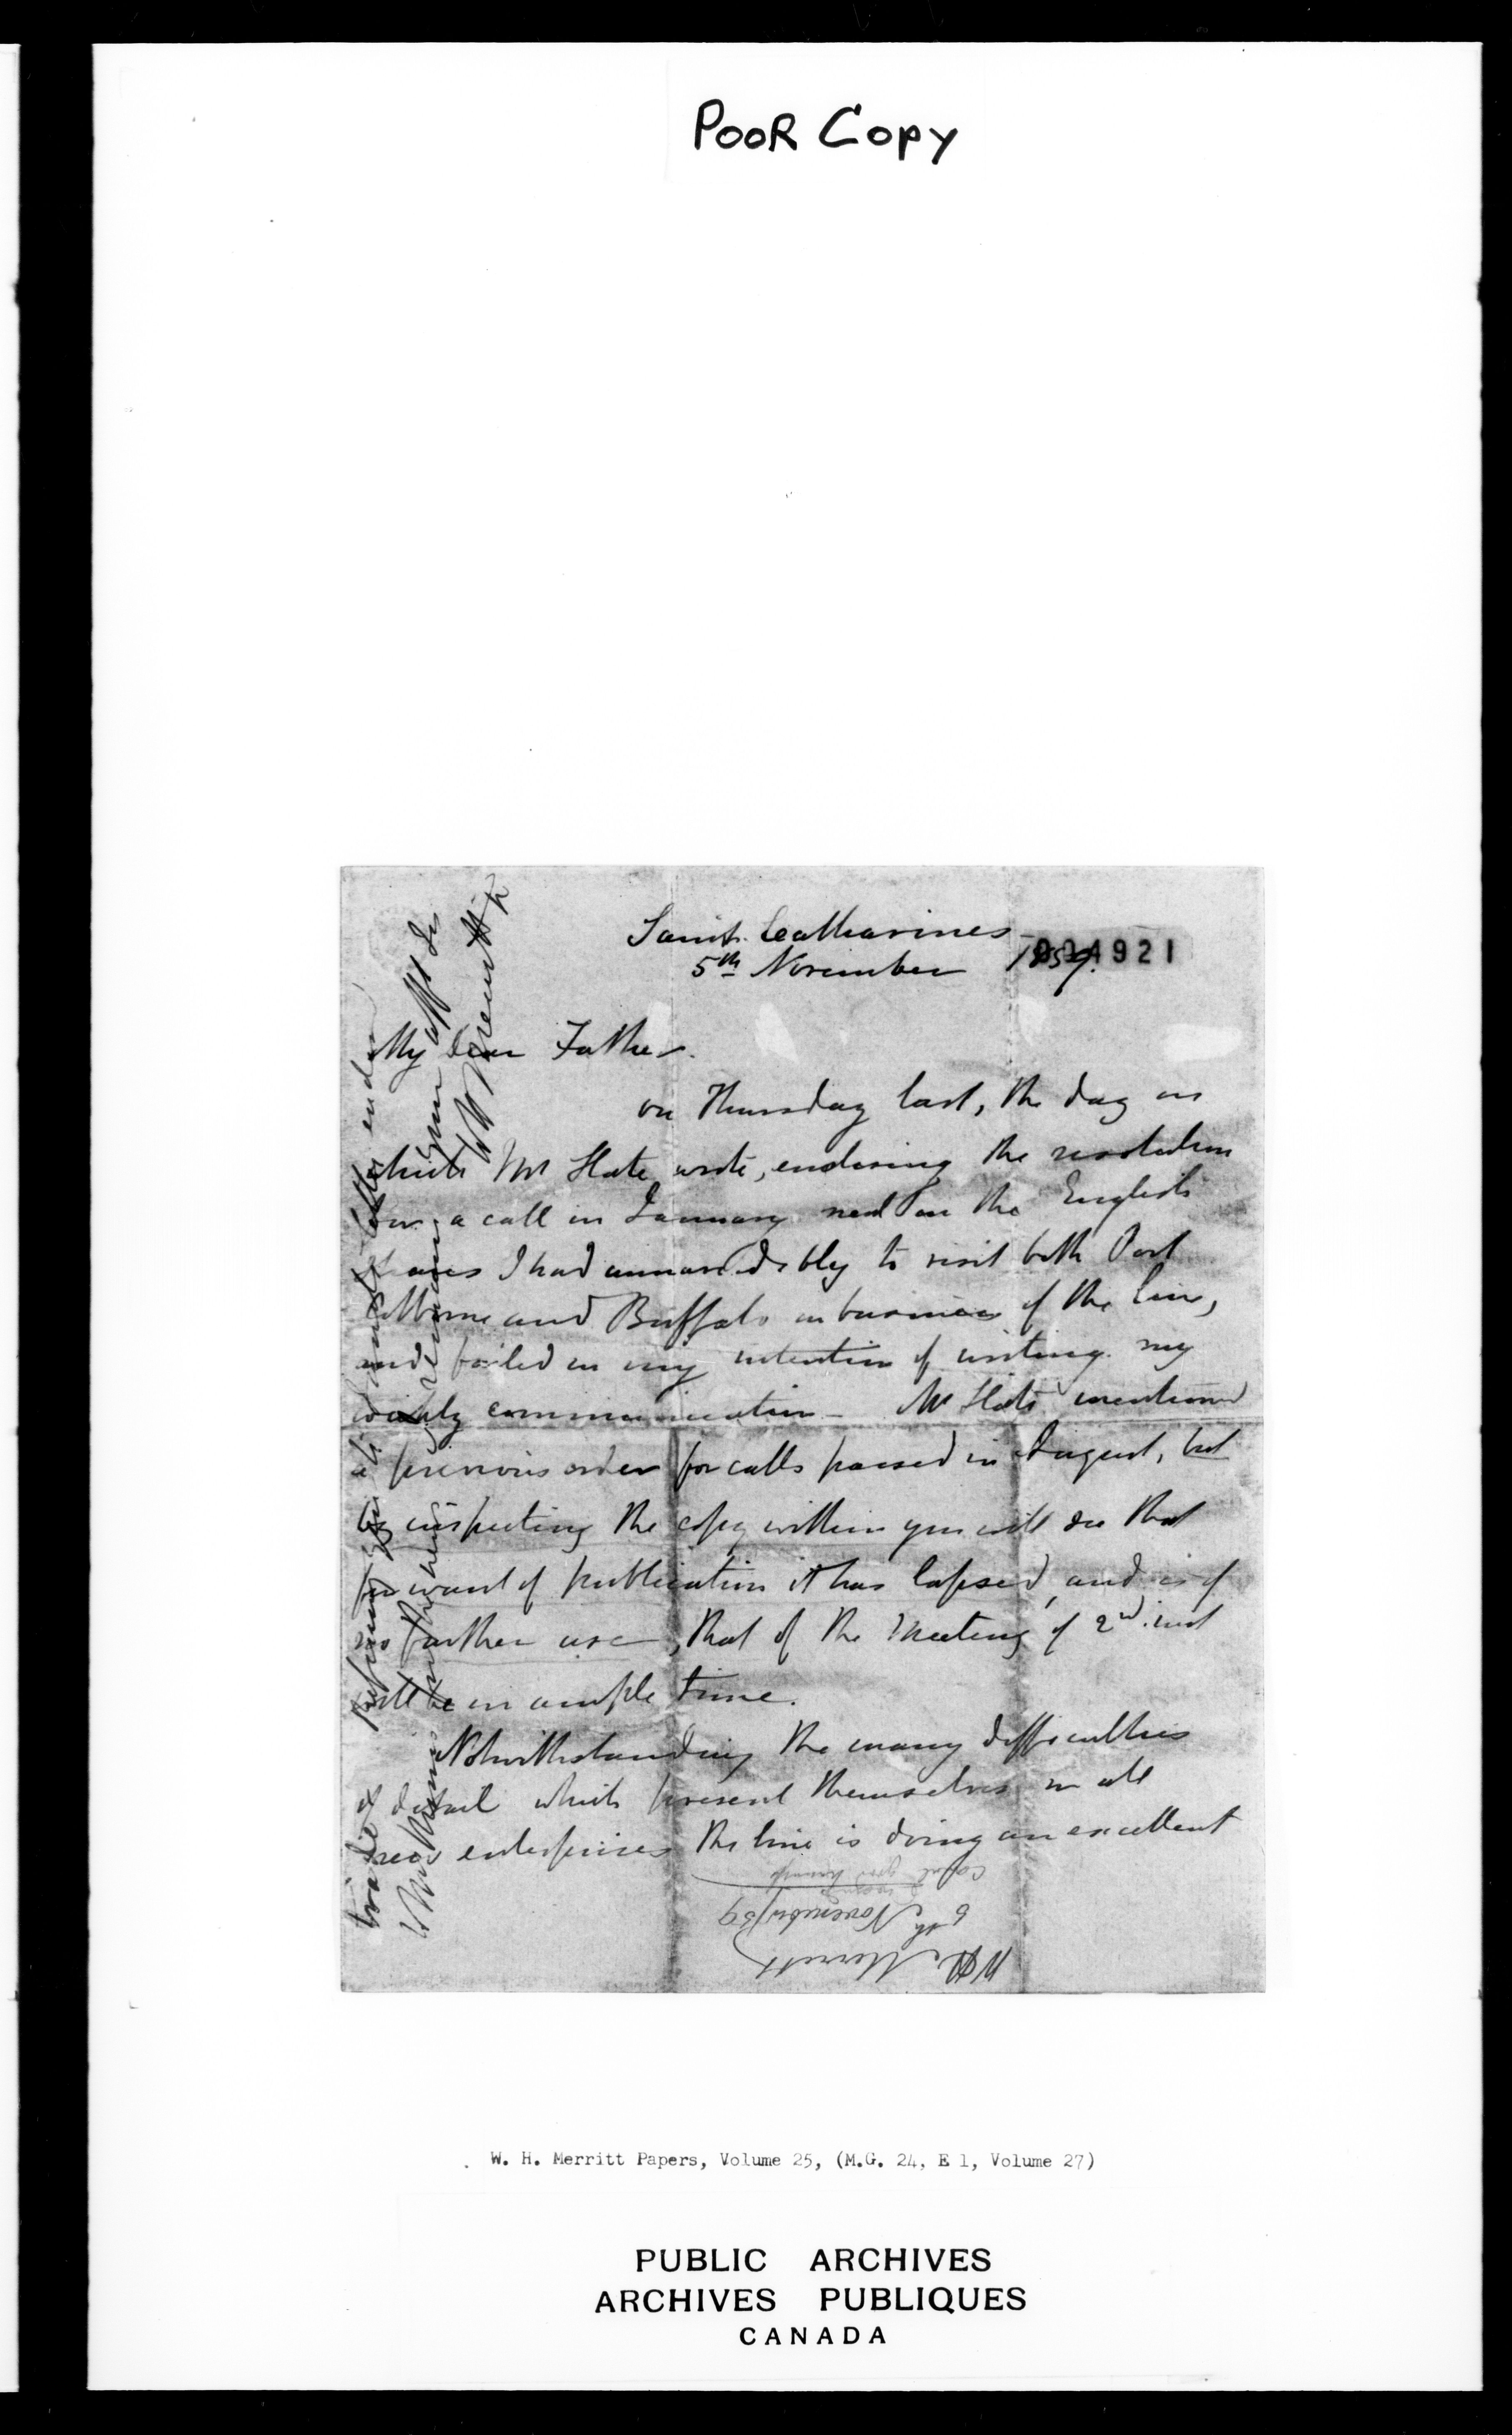 POOR COPY
Saint Catharines
004921
5th November 1859.
My dear Father.
on Thursday last, the day on
which Mr Slate wrote, enclosing the resolution
for a call in January next on the English
shares I had unavoidably to visit both Port
Colborne and Buffalo on business of the line,
and failed in my intention of writing my
weekly communication – Mr Slate mentioned
a previous order for calls passed in August, but
by inspecting the copy within you will see that
for want of publication it has lapsed, and is of
no further use, that of the Meeting of 2nd inst
will be in ample time.
Notwithstanding the many difficulties
of detail which present themselves in all
new enterprises the line is doing an excellent
trade
your aff
W H Merritt Jr
W H Merritt
5th November/59
W. H. Merritt Papers, Volume 25, (M.G. 24, E 1, Volume 27)
PUBLIC ARCHIVES
ARCHIVES PUBLIQUES
CANADA